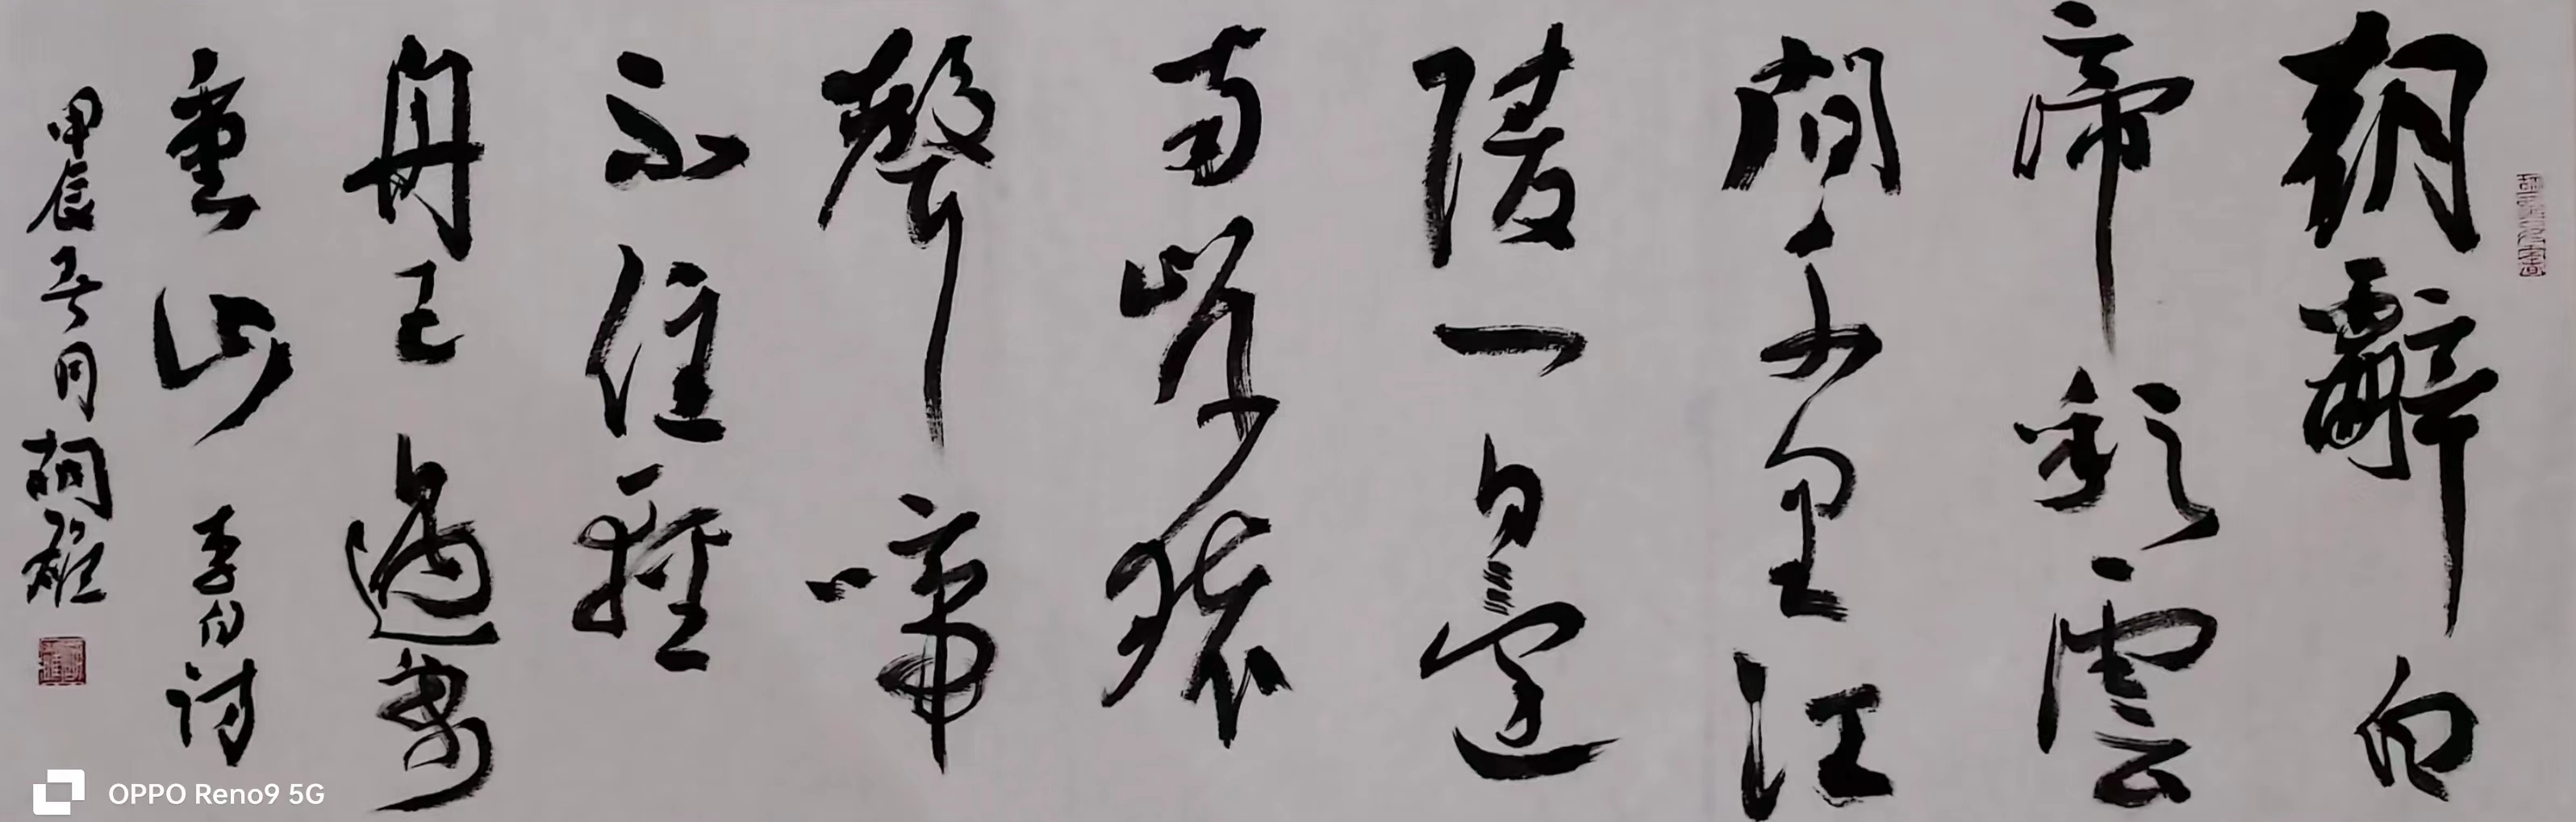 朝辭白
帝彩雲
間千里江
陵一日還
兩岸猿
聲啼
不住輕
舟已過萬
重山 李白詩
甲辰 月
OPPO Reno9 5G